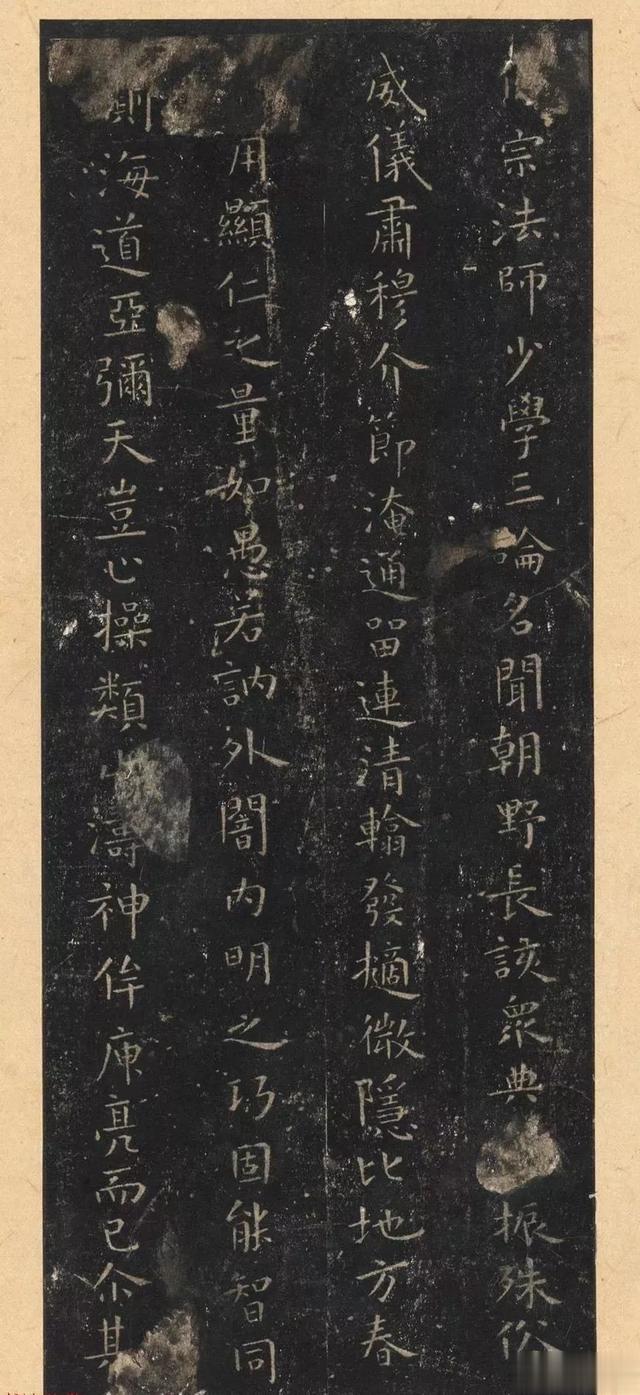 宗法師少學三論名聞朝野長該眾典振殊俗
威儀肅穆介節淹通留連清翰發擿微隱比地方春
用顯仁之量如愚若訥外闇內明之巧固能智同
測海道亞彌天豈心操類山濤神侔庾亮而已尒其